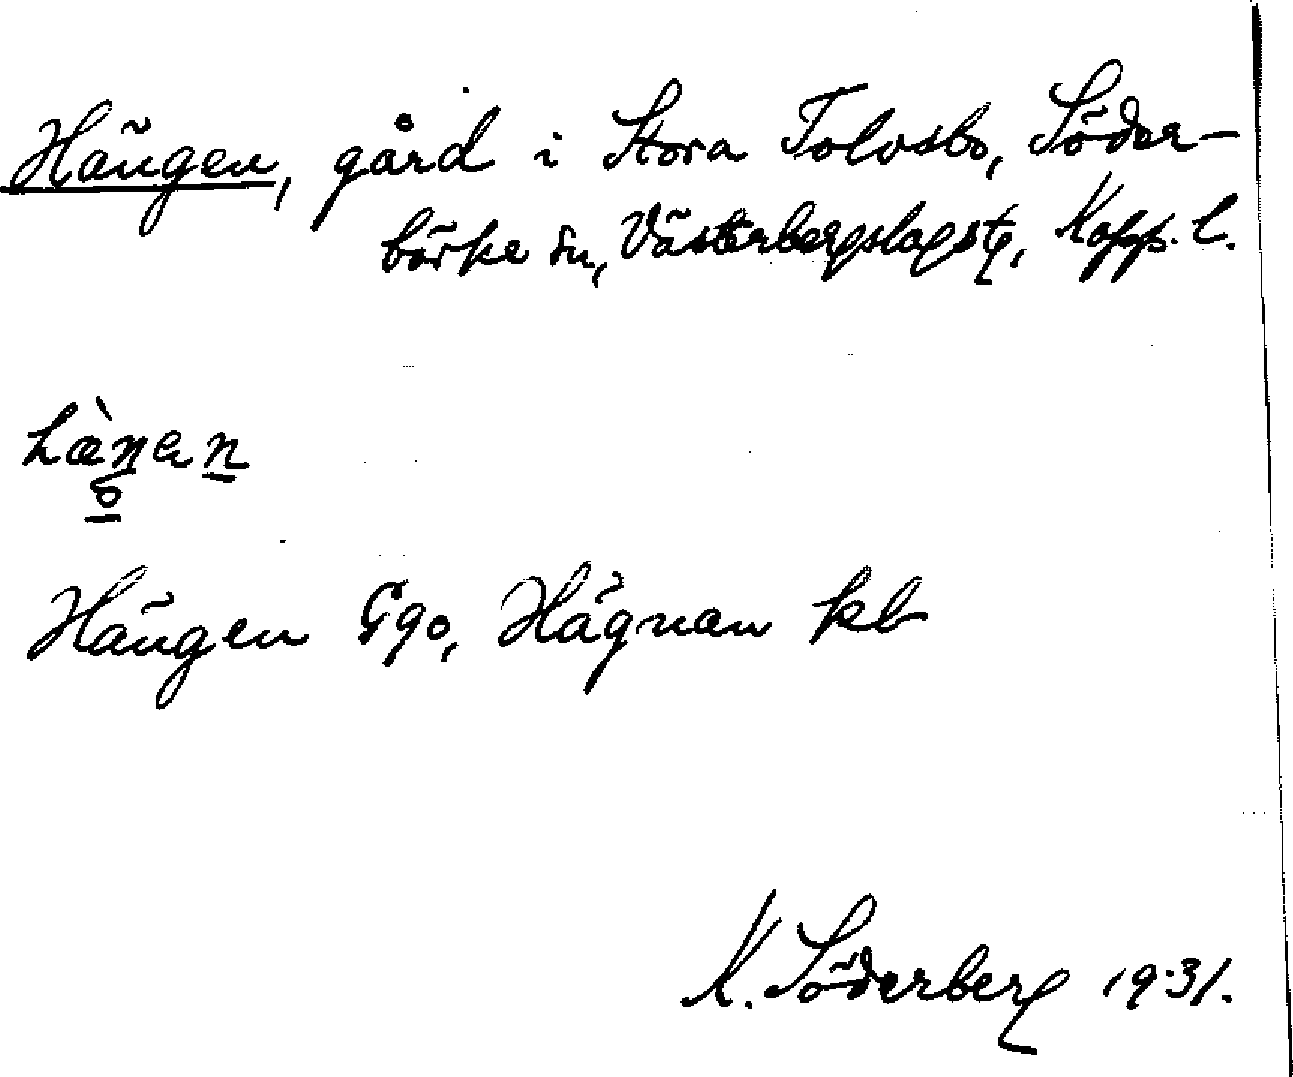 Hängen, gård i Stora Tolvsbo, Söder-
bärke sn, Västerbergslagstg, Kopp. l.
Hängen Ggo, Hägnan kb
K. Söderberg 1931.